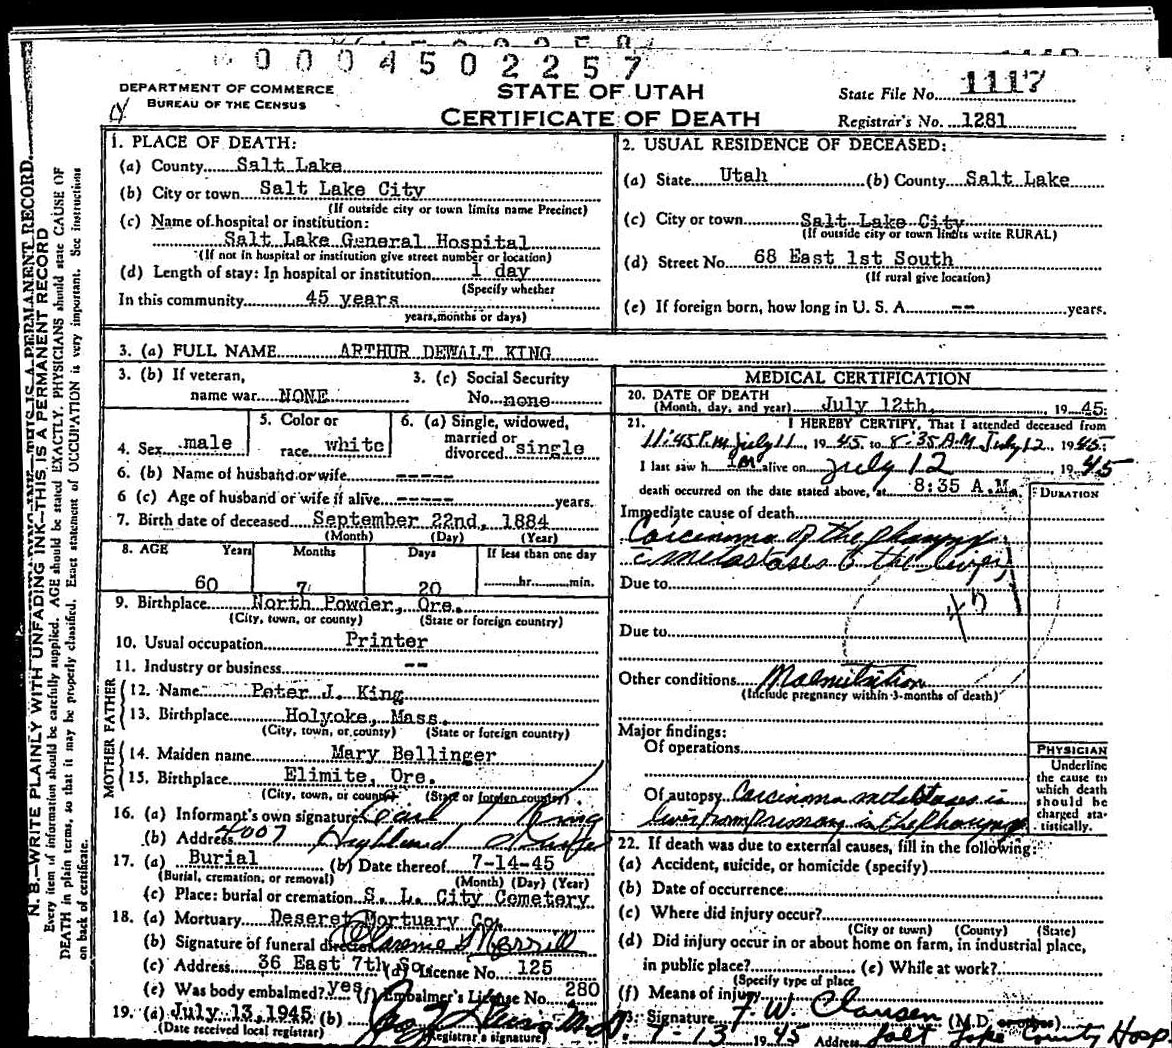 0 0 0 4 5 0 2 2 5 7
DEPARTMENT OF COMMERCE
BUREAU OF THE CENSUS
STATE OF UTAH
CERTIFICATE OF DEATH
State File No. 1117
Registrar's No. 1281
N. B.—WRITE PLAINLY WITH UNFADING INK—THIS IS A PERMANENT RECORD
Every item of information should be carefully supplied. AGE should be stated EXACTLY. PHYSICIANS should state CAUSE OF
DEATH in plain terms, so that it may be properly classified. Exact statement of OCCUPATION is very important. See instructions
on back of certificate.
1. PLACE OF DEATH:
(a) County Salt Lake
(b) City or town Salt Lake City
(If outside city or town limits name Precinct)
(c) Name of hospital or institution:
Salt Lake General Hospital
(If not in hospital or institution give street number or location)
(d) Length of stay: In hospital or institution 1 day
(Specify whether
In this community 45 years
years, months or days)
2. USUAL RESIDENCE OF DECEASED:
(a) State Utah (b) County Salt Lake
(c) City or town Salt Lake City
(If outside city or town limits write RURAL)
(d) Street No. 68 East 1st South
(If rural give location)
(e) If foreign born, how long in U. S. A. -- years.
3. (a) FULL NAME ARTHUR DEWALT KING
3. (b) If veteran,
name war NONE
3. (c) Social Security
No. none
4. Sex male
5. Color or
race white
6. (a) Single, widowed,
married or
divorced single
6. (b) Name of husband or wife -----
6 (c) Age of husband or wife if alive ----- years.
7. Birth date of deceased September 22nd, 1884
(Month) (Day) (Year)
8. AGE Years Months Days If less than one day
60 7 20 hr. min.
9. Birthplace North Powder, Ore.
(City, town, or county) (State or foreign country)
10. Usual occupation Printer
11. Industry or business --
FATHER
12. Name Peter J. King
13. Birthplace Holyoke, Mass.
(City, town, or county) (State or foreign country)
MOTHER
14. Maiden name Mary Bellinger
15. Birthplace Elimite, Ore.
(City, town, or county) (State or foreign country)
16. (a) Informant's own signature King
(b) Address 4007 Highland Drive
17. (a) Burial (b) Date thereof 7-14-45
(Burial, cremation, or removal) (Month) (Day) (Year)
(c) Place: burial or cremation S. L. City Cemetery
18. (a) Mortuary Deseret Mortuary Co.
(b) Signature of funeral director Clarence S Merrill
(c) Address 36 East 7th So. (d) License No. 125
(e) Was body embalmed? yes (f) Embalmer's License No. 280
19. (a) July 13, 1945 (b)
(Date received local registrar) (Registrar's signature)
MEDICAL CERTIFICATION
20. DATE OF DEATH
(Month, day, and year) July 12th, 19 45
21. I HEREBY CERTIFY, That I attended deceased from
11:45 P.M July 11 19 45 to 8:35 A.M. July 12 19 45
I last saw h im alive on July 12 19 45
death occurred on the date stated above, at 8:35 A.M.
DURATION
Immediate cause of death
Carcinoma of the pharynx
c metastases to the liver
Due to
47
Due to
Other conditions Malnutrition
(Include pregnancy within 3 months of death)
Major findings:
Of operations
Of autopsy Carcinoma metastases in
liver from primary in the pharynx
PHYSICIAN
Underline
the cause to
which death
should be
charged sta-
tistically.
22. If death was due to external causes, fill in the following:
(a) Accident, suicide, or homicide (specify)
(b) Date of occurrence
(c) Where did injury occur?
(City or town) (County) (State)
(d) Did injury occur in or about home on farm, in industrial place,
in public place? (e) While at work?
(Specify type of place
(f) Means of injury
23. Signature F. W. Clausen (M.D.
7-13 19 45 Address Salt Lake County Hosp